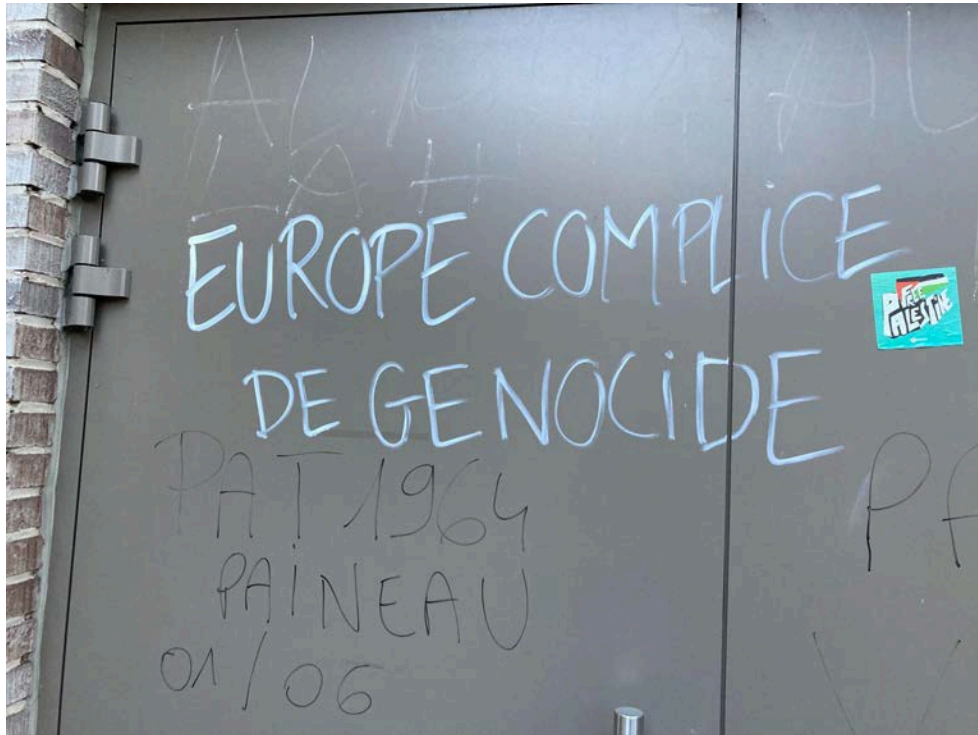 EUROPE COMPLICE
DE GENOCIDE
FREE
PALESTINE
PAT 1964
PAINEAU
01/06